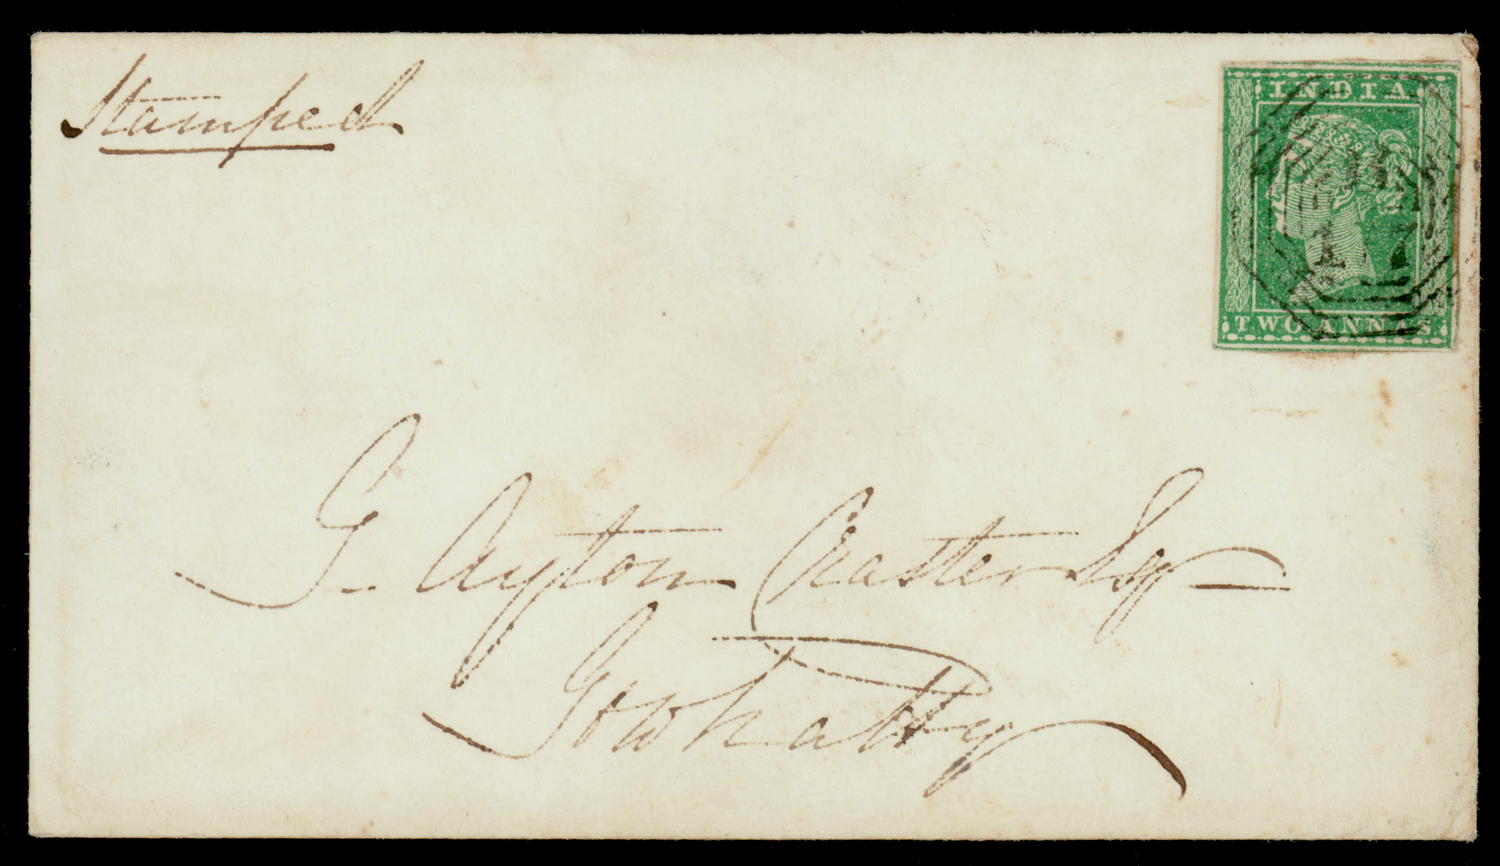 Stamped
INDIA
TWO ANNAS.
G. Ayton Craster Esqr
Gowhatty